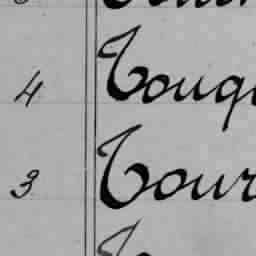 4 Touq
3 Tour